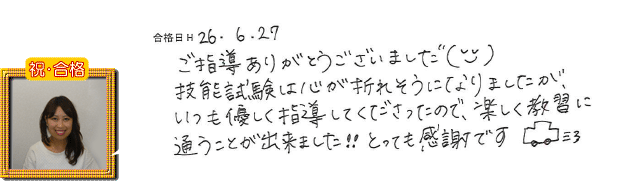 合格日 H 26.6.27
祝・合格
ご指導ありがとうございました(ᵕᵕ)
技能試験は心が折れそうになりましたが、
いつも優しく指導してくださったので、楽しく教習に
通うことが出来ました!! とっても感謝です